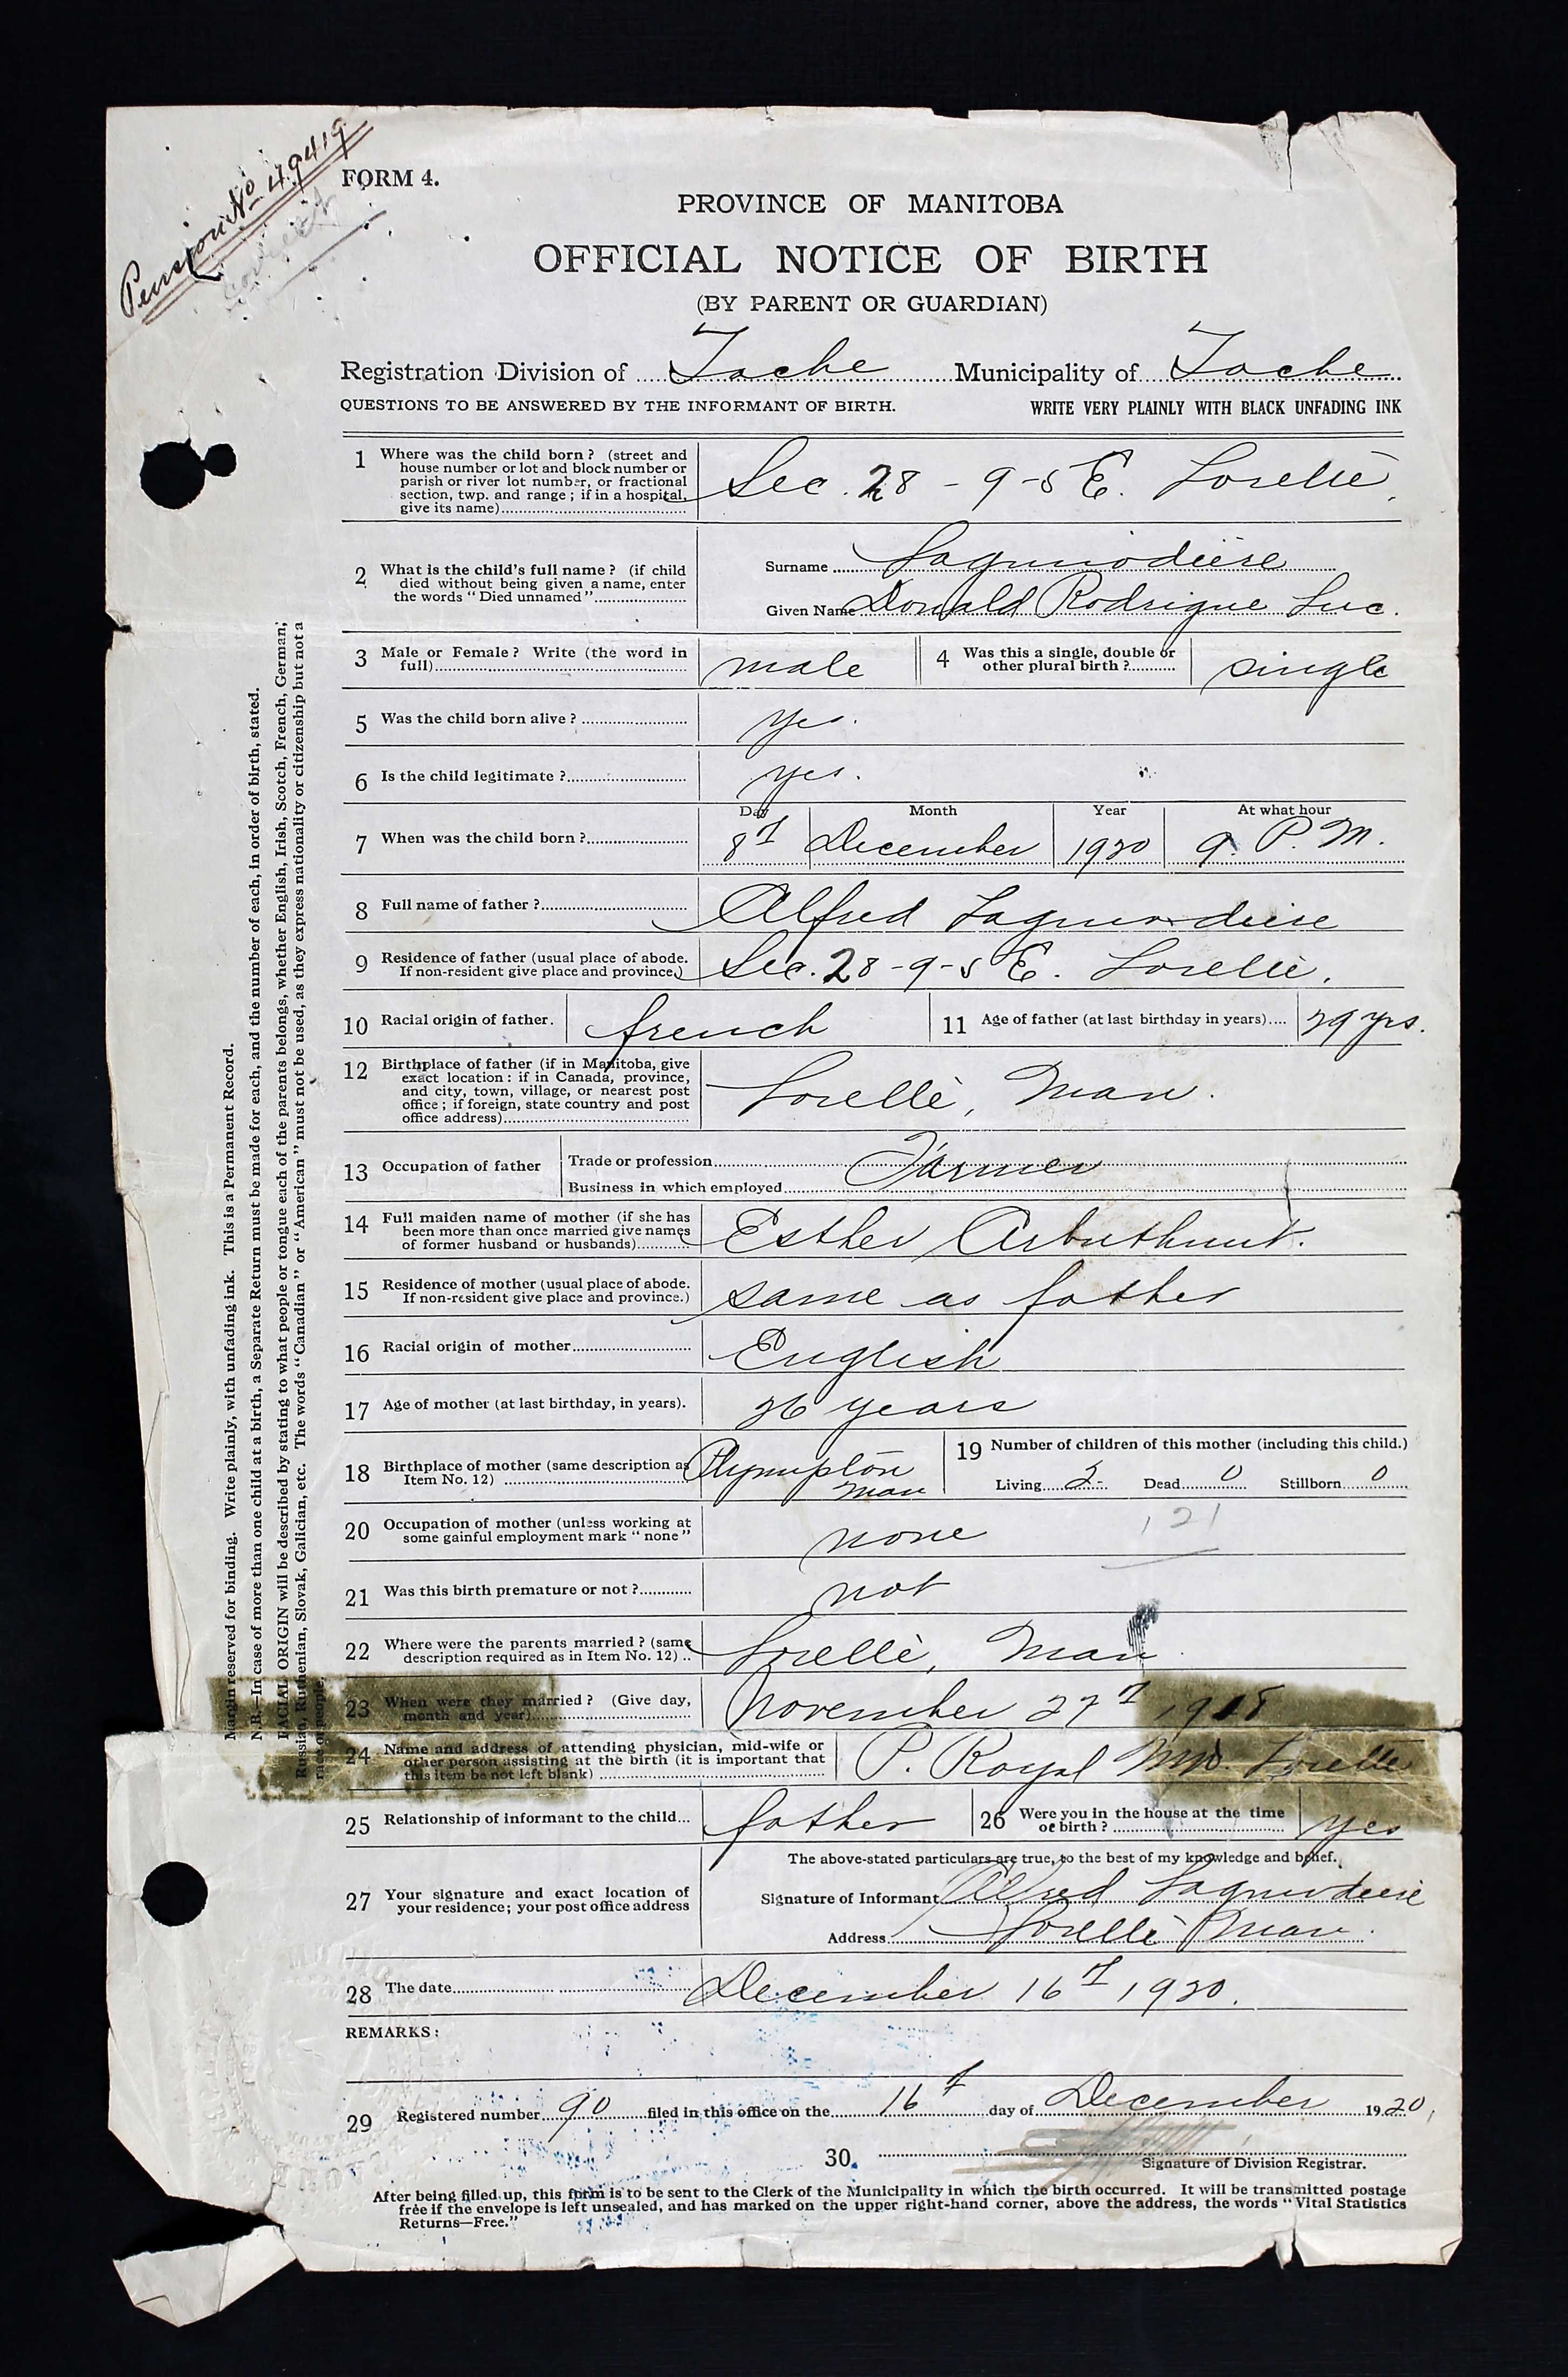 Pension No 49419
Correct
FORM 4.
PROVINCE OF MANITOBA
OFFICIAL NOTICE OF BIRTH
(BY PARENT OR GUARDIAN)
Registration Division of Tache Municipality of Tache
QUESTIONS TO BE ANSWERED BY THE INFORMANT OF BIRTH. WRITE VERY PLAINLY WITH BLACK UNFADING INK
1 Where was the child born? (street and
house number or lot and block number or
parish or river lot number, or fractional
section, twp. and range; if in a hospital,
give its name)
Sec. 28 - 9 - 5 E. Lorette.
2 What is the child's full name? (if child
died without being given a name, enter
the words "Died unnamed"
Surname Lagimodiere
Given Name Donald Rodrigue Luc.
3 Male or Female? Write (the word in
full) male
4 Was this a single, double or
other plural birth? single
5 Was the child born alive? yes.
6 Is the child legitimate? yes.
Day Month Year At what hour
7 When was the child born? 8th December 1920 9. P.M.
8 Full name of father? Alfred Lagimodiere
9 Residence of father (usual place of abode.
If non-resident give place and province.)
Sec. 28-9-5 E. Lorette.
10 Racial origin of father. french 11 Age of father (at last birthday in years) 29 yrs.
12 Birthplace of father (if in Manitoba, give
exact location: if in Canada, province,
and city, town, village, or nearest post
office; if foreign, state country and post
office address)
Lorette, Man.
13 Occupation of father
Trade or profession Farmer
Business in which employed
14 Full maiden name of mother (if she has
been more than once married give names
of former husband or husbands)
Esther Arbuthnot.
15 Residence of mother (usual place of abode.
If non-resident give place and province.)
same as father
16 Racial origin of mother English
17 Age of mother (at last birthday, in years). 26 years
18 Birthplace of mother (same description as
Item No. 12)
Plympton
Man
19 Number of children of this mother (including this child.)
Living 2 Dead 0 Stillborn 0
20 Occupation of mother (unless working at
some gainful employment mark "none"
none
121
21 Was this birth premature or not? not
22 Where were the parents married? (same
description required as in Item No. 12)
Lorette, Man.
23 When were they married? (Give day,
month and year)
November 27th 1918
24 Name and address of attending physician, mid-wife or
other person assisting at the birth (it is important that
this item be not left blank)
P. Royal M.D. Lorette
25 Relationship of informant to the child father
26 Were you in the house at the time
of birth? yes
The above-stated particulars are true, to the best of my knowledge and belief.
27 Your signature and exact location of
your residence; your post office address
Signature of Informant Alfred Lagimodiere
Address Lorette Man.
28 The date December 16th 1920.
REMARKS:
29 Registered number 90 filed in this office on the 16th day of December 1920.
30
Signature of Division Registrar.
After being filled up, this form is to be sent to the Clerk of the Municipality in which the birth occurred. It will be transmitted postage
free if the envelope is left unsealed, and has marked on the upper right-hand corner, above the address, the words "Vital Statistics
Returns—Free."
Margin reserved for binding. Write plainly, with unfading ink. This is a Permanent Record.
N.B.—In case of more than one child at a birth, a Separate Return must be made for each, and the number of each, in order of birth, stated.
RACIAL ORIGIN will be described by stating to what people or tongue each of the parents belongs, whether English, Irish, Scotch, French, German,
Russian, Ruthenian, Slovak, Galician, etc. The words "Canadian" or "American" must not be used, as they express nationality or citizenship but not a
race of people.